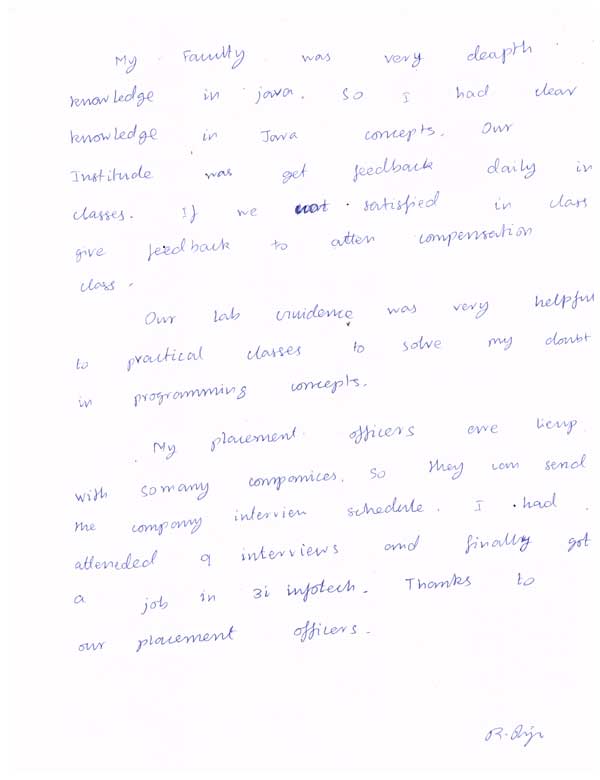 My Faculty was very deapth
knowledge in java. So I had clear
knowledge in Java concepts. Our
Institude was get feedback daily in
classes. If we not satisfied in class
give feedback to atten compensation
class.
Our Lab Guidence was very helpful
to practical classes to solve my doubt
in programming concepts.
My placement officers are tieup
with somany companices. So they can send
the company intervien schedule. I had
atteneded 9 interviews and finally got
a job in 3i infotech. Thanks to
our placement officers.